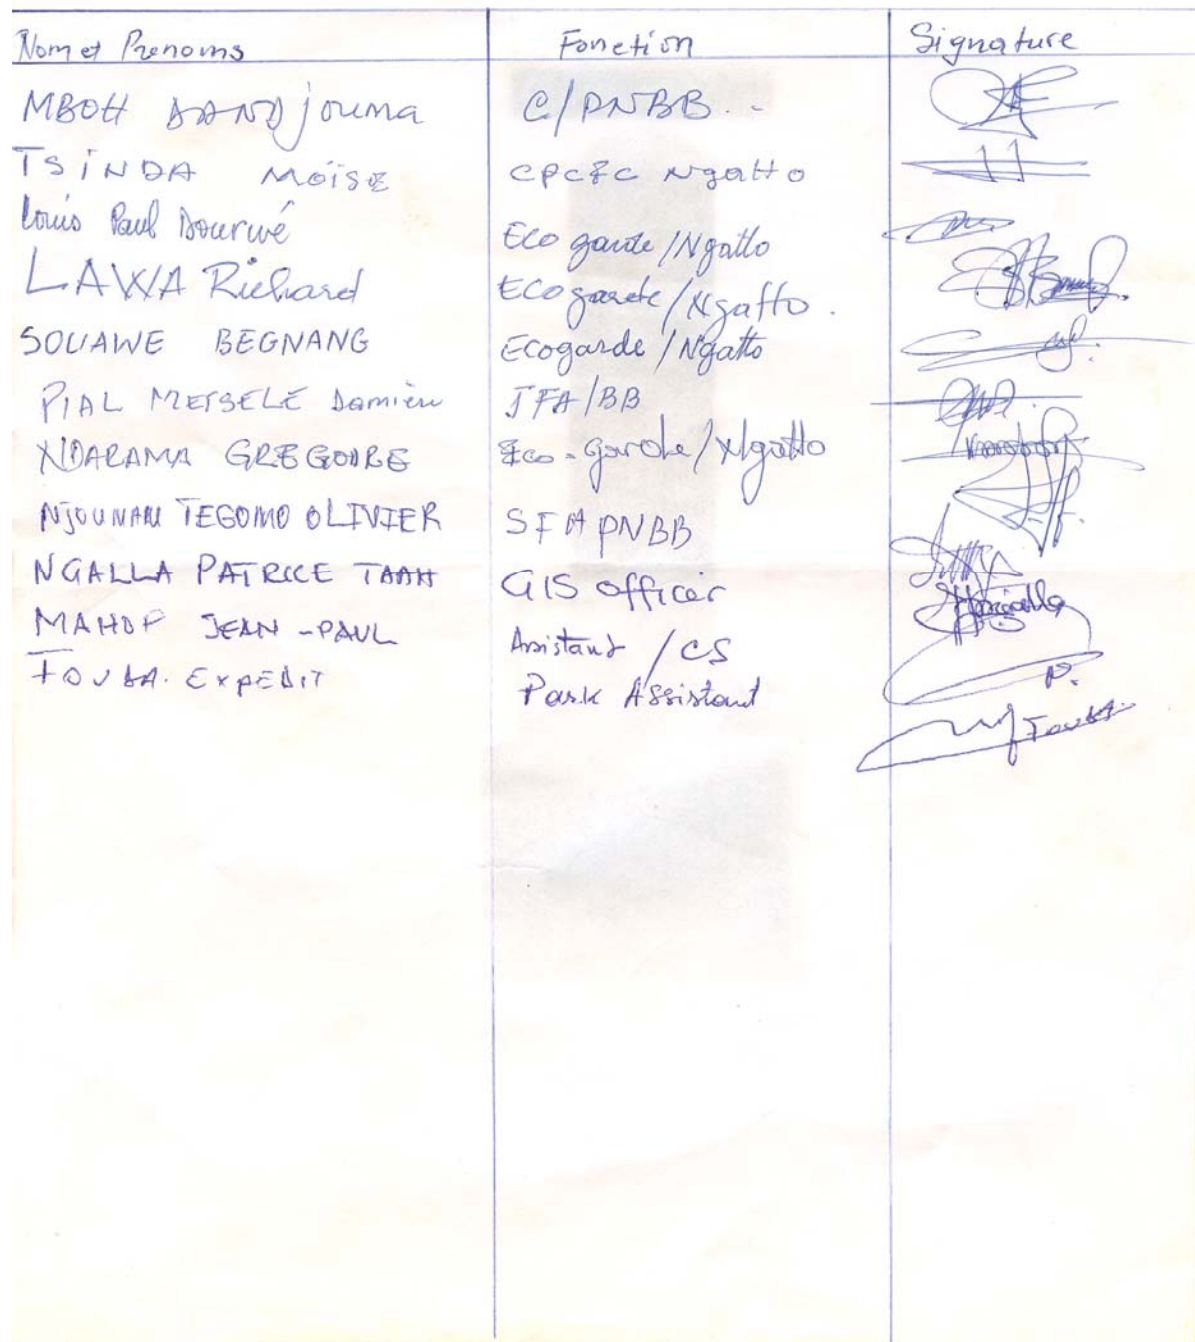 Nom et Prenoms Fonction Signature
MBOH DANDjouma C/PNBB
TSINDA MOÏSE CPCFC Ngatto
Louis Paul Dourwé Eco garde/Ngatto
LAWA Richard ECO garde/Ngatto.
SOUAWE BEGNANG Ecogarde/Ngatto
PIAL MEPSELE Damien JFA/BB
NDARAMA GREGOIRE Eco-garde/Ngatto
NJOUNAN TEGOMO OLIVIER SFA PNBB
NGALLA PATRICE TAAH GIS officer
MAHOP JEAN-PAUL Assistant/CS
TOUBA EXPEDIT Park Assistant